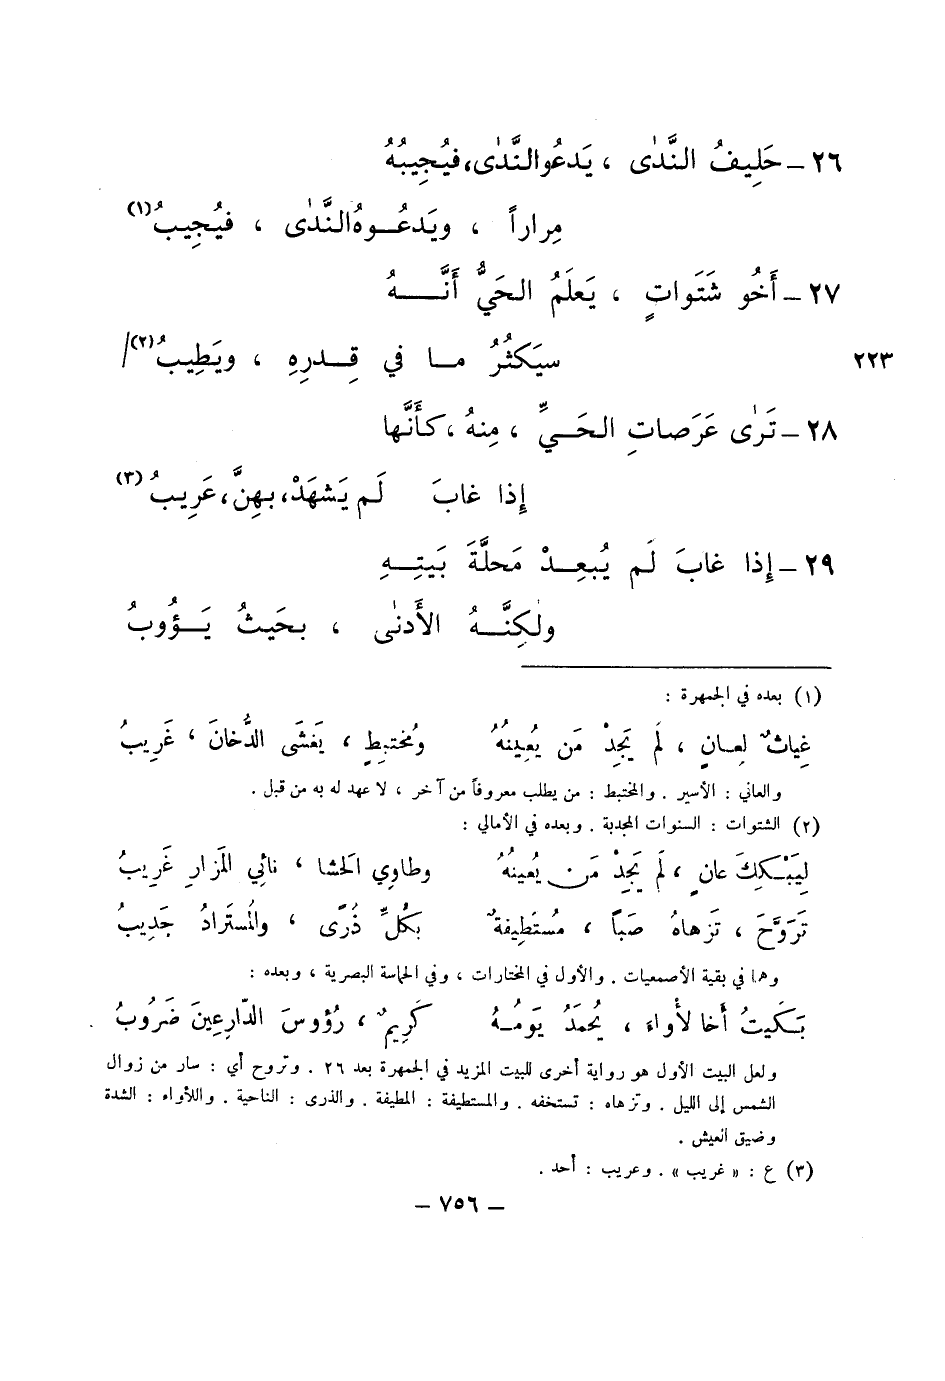 ٢٦ – حَلِيفُ النَّدٰى ، يَدعُو النَّدٰى، فيُجِيبُهُ
مِراراً ، ويَدعُــوهُ النَّدٰى ، فيُجِيبُ(١)
٢٧ – أَخُو شَتَواتٍ ، يَعلَمُ الحَيُّ أَنَّـــهُ
٢٢٣ سيَكثُرُ مــا في قِــدرِهِ ، ويَطِيبُ(٢)/
٢٨ – تَرٰى عَرَصاتِ الحَــيِّ ، مِنهُ ، كأَنَّها
إِذا غابَ لَم يَشهَدْ، بهِنَّ، عَرِيبُ(٣)
٢٩ – إِذا غابَ لَم يُبعِــدْ مَحلَّةَ بَيتِــهِ
ولٰكِنَّــهُ الأَدنٰى ، بحَيثُ يَــؤُوبُ
(١) بعده في الجمهرة :
غِياثٌ لِعــانٍ ، لَم يَجِدْ مَن يُعِينُهُ ومُختبِطٍ ، يَغشَى الدُّخانَ ، غَرِيبُ
والعاني : الأسير . والمختبط : من يطلب معروفاً من آخر ، لا عهد له به من قبل .
(٢) الشتوات : السنوات المجدبة . وبعده في الأمالي :
لِيَبْــكِكَ عانٍ ، لَم يَجِدْ مَن يُعينُهُ وطاوِي الحَشا ، نائِي المَزارِ غَرِيبُ
تَرَوَّحَ ، تَزهاهُ صَباً ، مُستَطِيفةٌ بكُلِّ ذُرًى ، والمُستَرادُ جَدِيبُ
وهما في بقية الأصمعيات . والأول في المختارات ، وفي الحماسة البصرية ، وبعده :
بَــكَيتُ أَخا لأْواءَ ، يُحمَدُ يَومُــهُ كَرِيمٌ ، رُؤوسَ الدّارِعِينَ ضَرُوبُ .
ولعل البيت الأول هو رواية أخرى للبيت المزيد في الجمهرة بعد ٢٦ . وتروح أي : سار من زوال
الشمس إلى الليل . وتزهاه : تستخفه . والمستطيفة : المطيفة . والذرى : الناحية . واللأواء : الشدة
وضيق العيش .
(٣) ع : « غريب » . وعريب : أحد .
– ٧٥٦ –